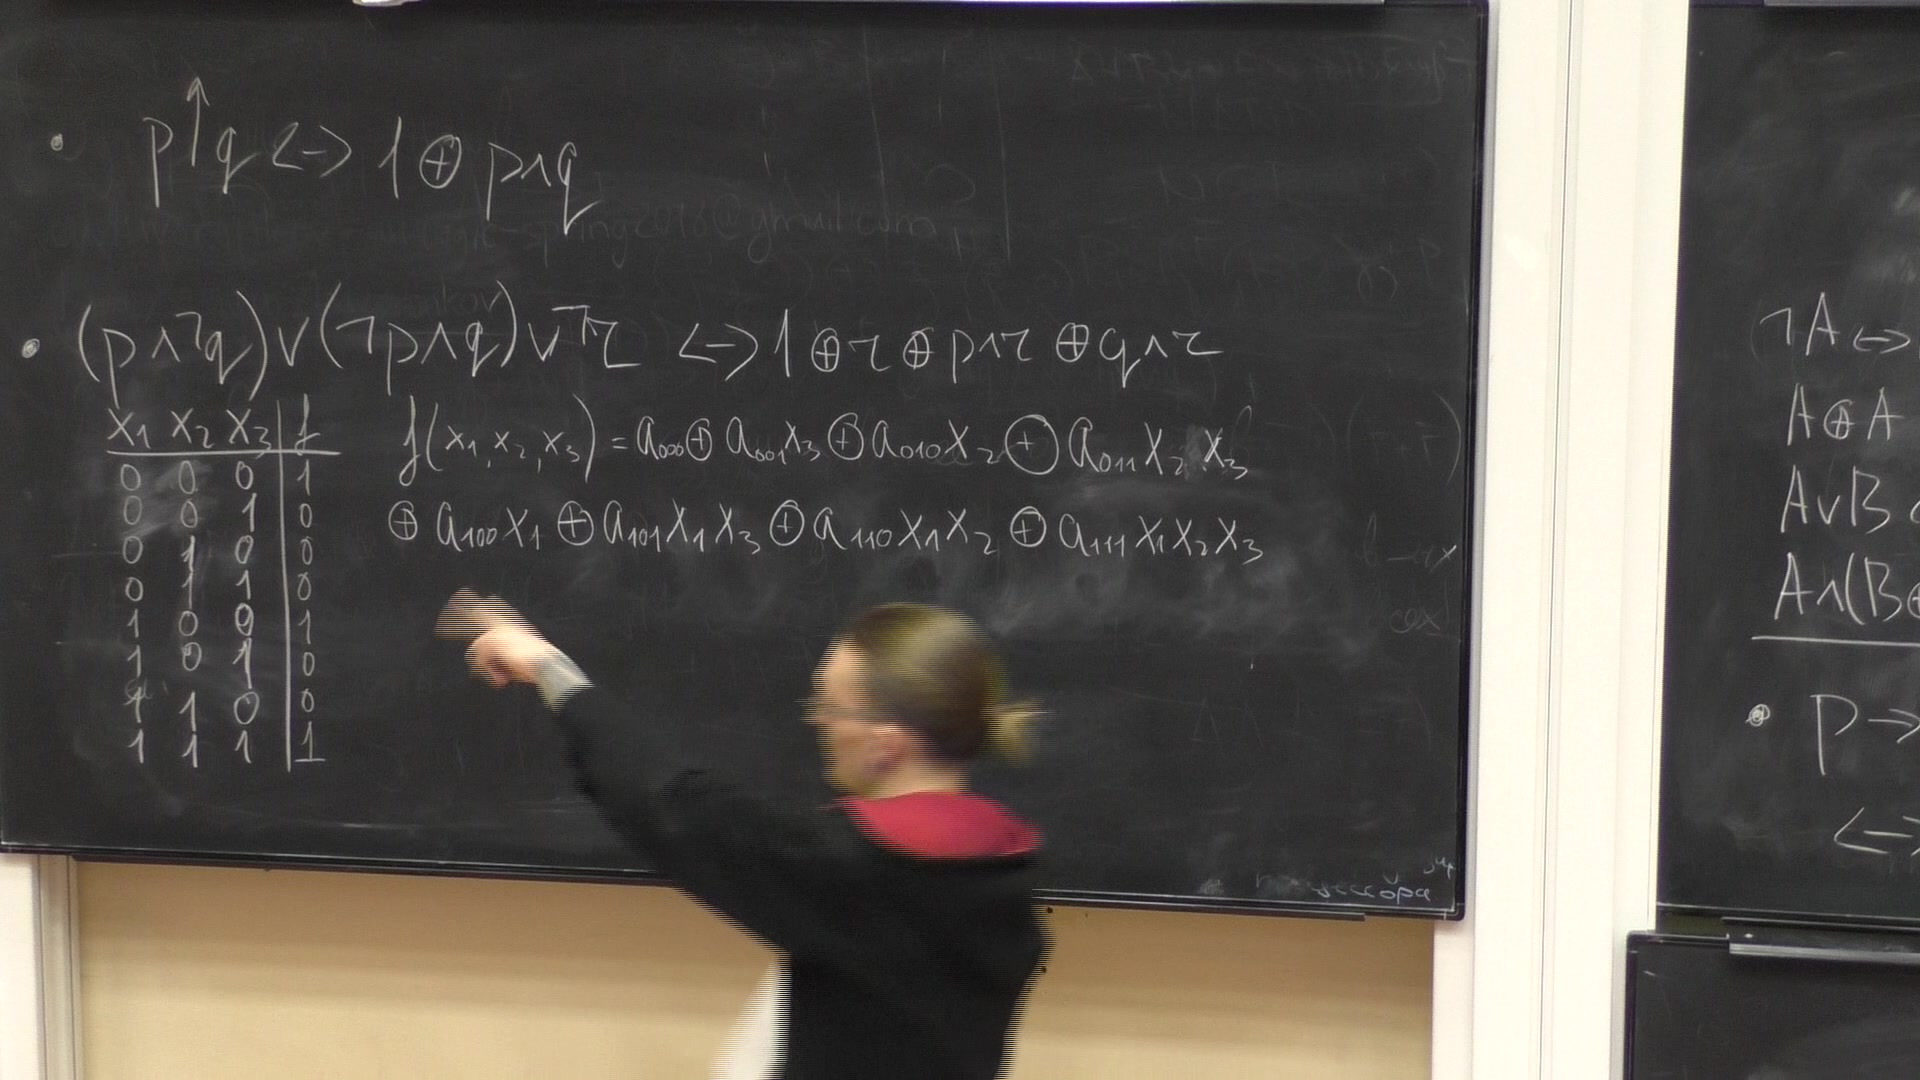 p↑q <-> 1 ⊕ p∧q
(p∧¬q)∨(¬p∧q)∨¬r <-> 1⊕r⊕p∧r⊕q∧r
x₁ x₂ x₃ f
0 0 0 1
0 0 1 0
0 1 0 0
0 1 1 0
1 0 0 1
1 0 1 0
1 1 0 0
1 1 1 1
f(x₁,x₂,x₃) = a₀₀₀⊕a₀₀₁x₃⊕a₀₁₀x₂⊕a₀₁₁x₂x₃
⊕a₁₀₀x₁⊕a₁₀₁x₁x₃⊕a₁₁₀x₁x₂⊕a₁₁₁x₁x₂x₃
¬A <->
A⊕A
A∨B
A∧(B⊕
p→
<->